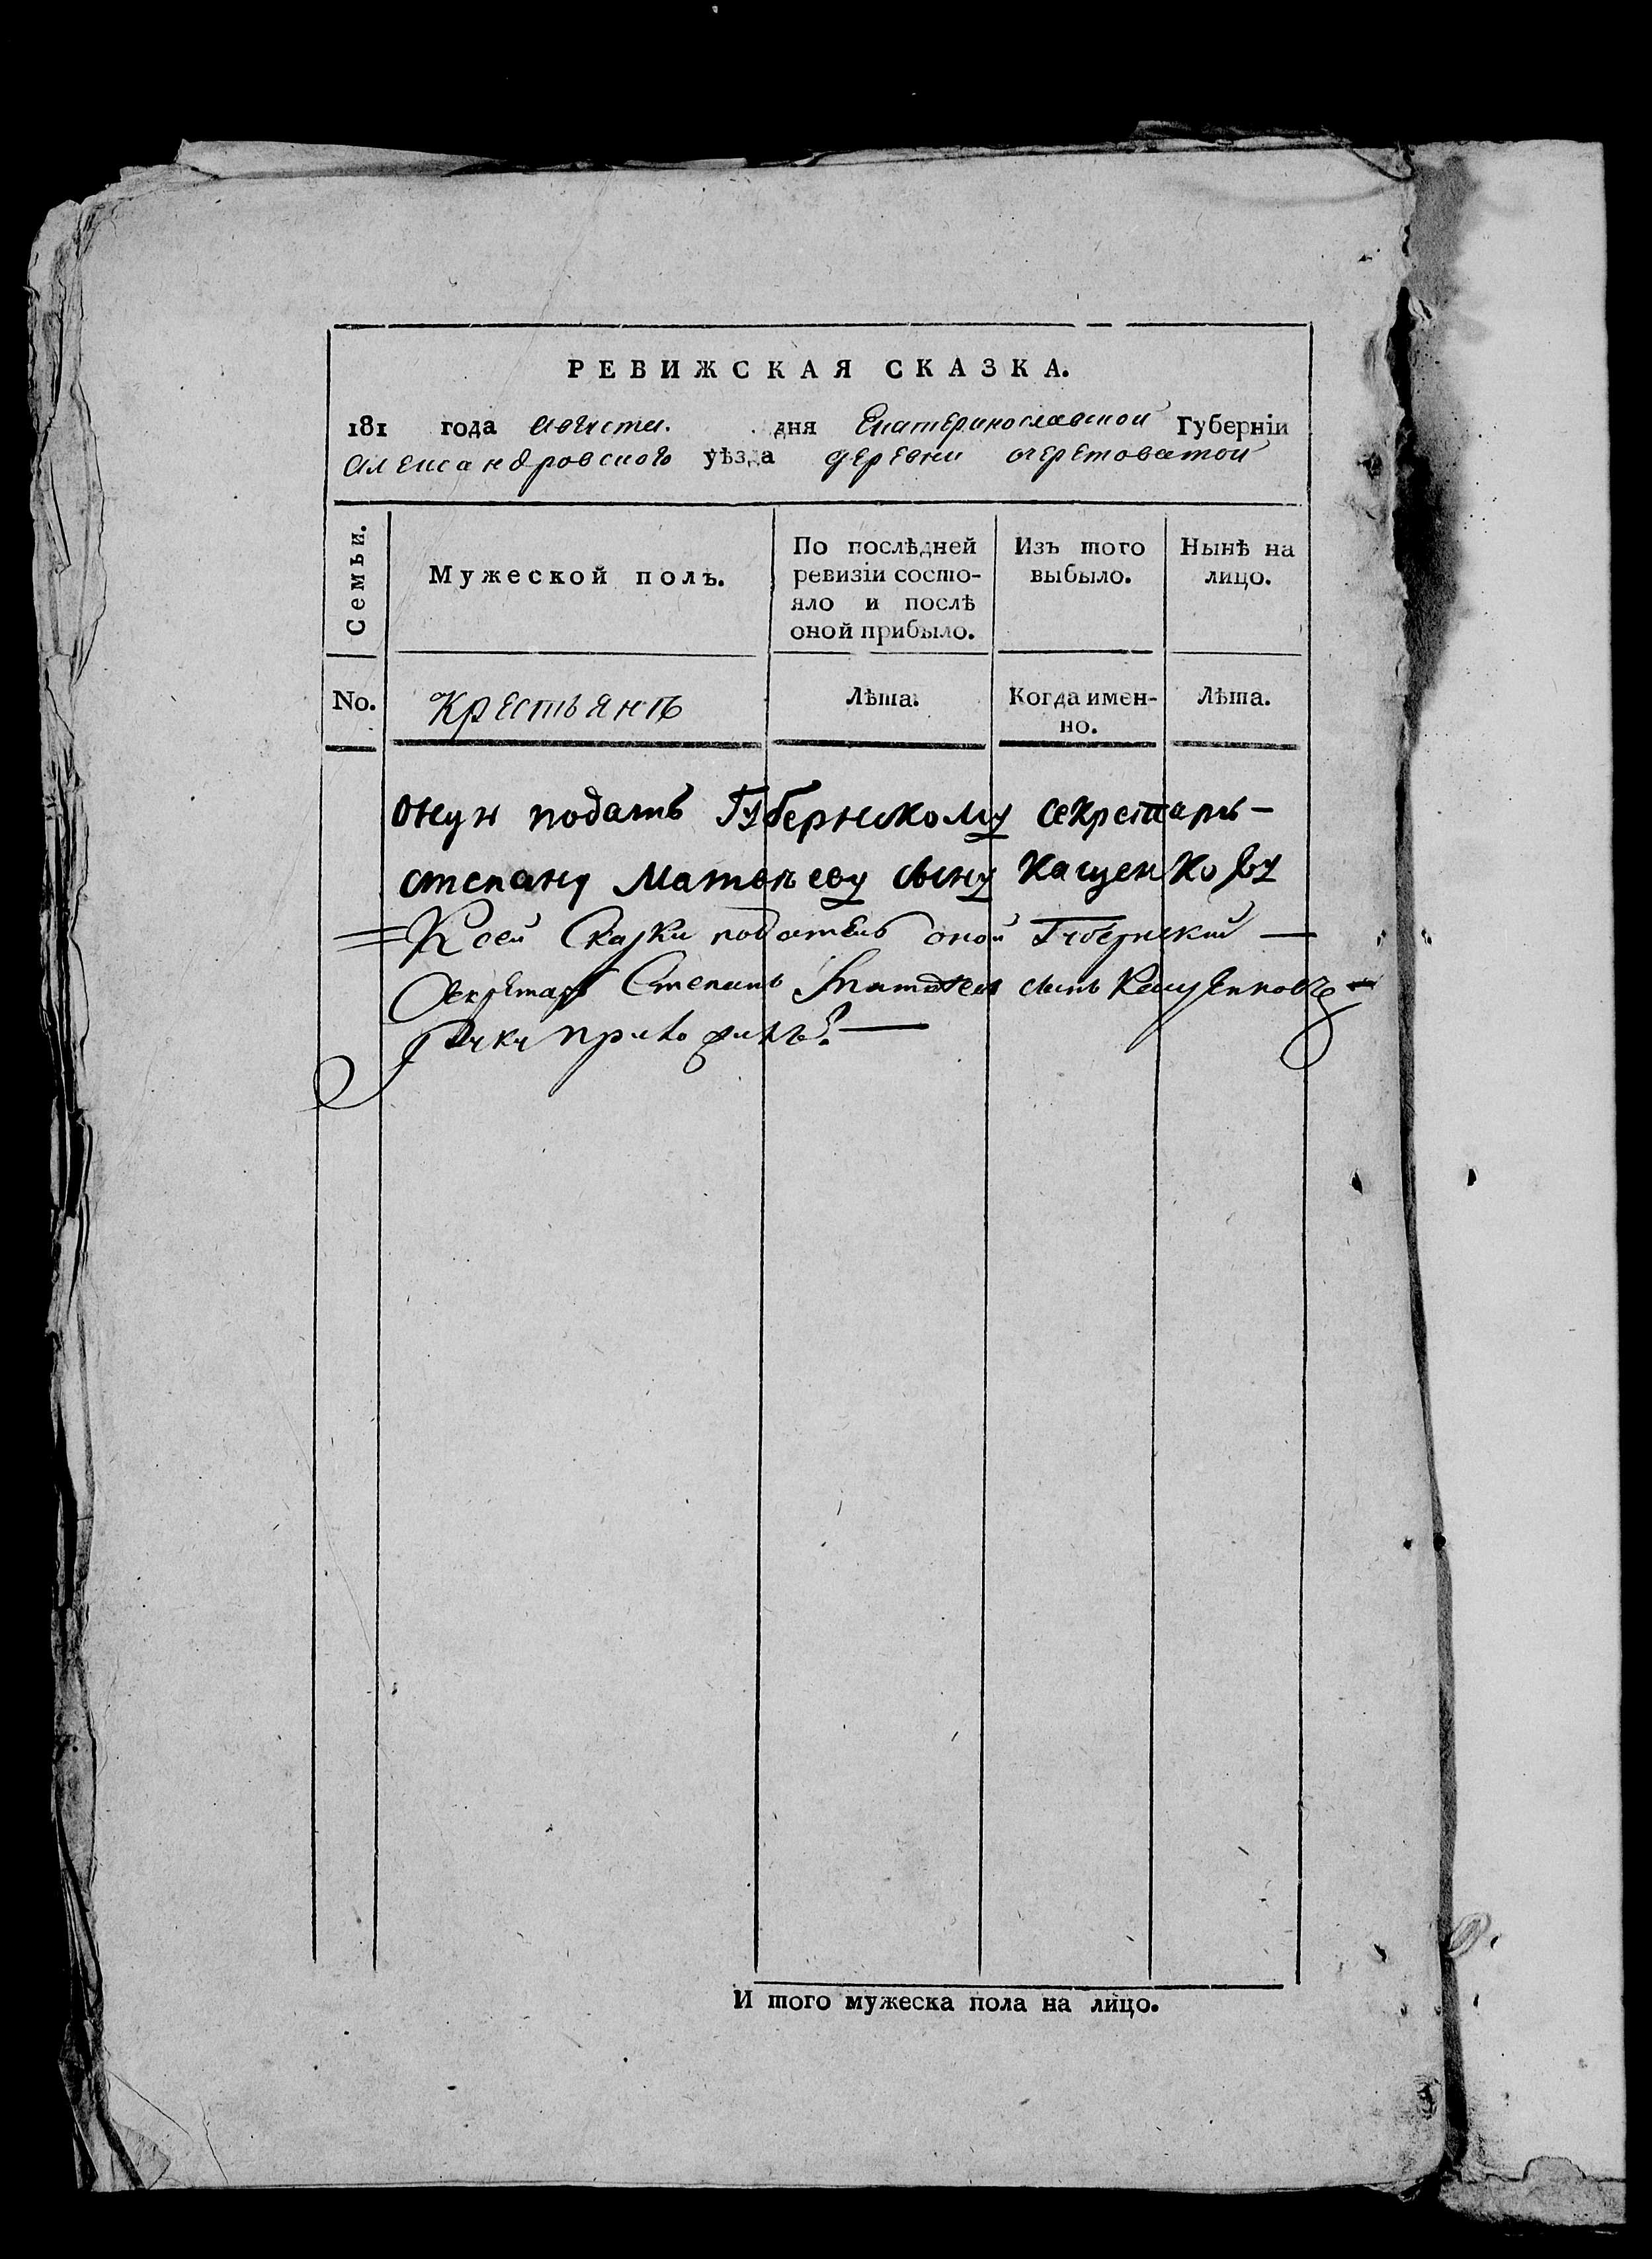 РЕВИЖСКАЯ СКАЗКА.
181 года августа. дня Екатеринославской Губерніи
Александровского уѣзда деревни очеретоватой
Семьи.
Мужеской полъ.
По послѣдней ревизіи состо-
яло и послѣ
оной прибыло.
Изъ того
выбыло.
Нынѣ на
лицо.
No.
Крестьянъ
Лѣта.
Когда имен-
но.
Лѣта.
подать Губернскому секретарь
степану Матвѣеву сыну Кащенкову
К сей Сказки податель оной Губернский
Секретарь Степанъ сынъ Кащенковъ
руку приложилъ
И того мужеска пола на лицо.